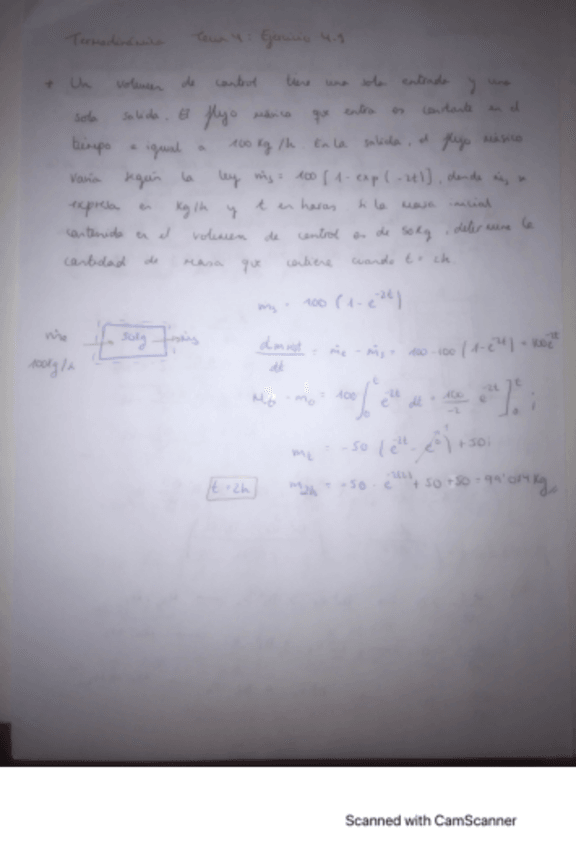 Termodinámica Tema 4: Ejercicio 4.9
* Un volumen de control tiene una sola entrada y una
sola salida. El flujo másico que entra es constante en el
tiempo e igual a 100 Kg/h. En la salida, el flujo másico
varía según la ley ṁs = 100 [1-exp(-2t)], donde ṁs se
expresa en Kg/h y t en horas. Si la masa inicial
contenida en el volumen de control es de 50Kg, determine la
cantidad de masa que contiene cuando t = 2h.
ṁs = 100 (1-e^-2t)
ṁe 50Kg ṁs
100Kg/h
dm/dt = ṁe - ṁs = 100-100 (1-e^-2t) = 100e^-2t
Mt - m0 = 100 ∫0^t e^-2t dt = 100/-2 e^-2t ]0^t ;
mt = -50 (e^-2t - e^0) + 50;
t=2h m2h = -50 · e + 50 + 50 = 99'084 Kg
Scanned with CamScanner